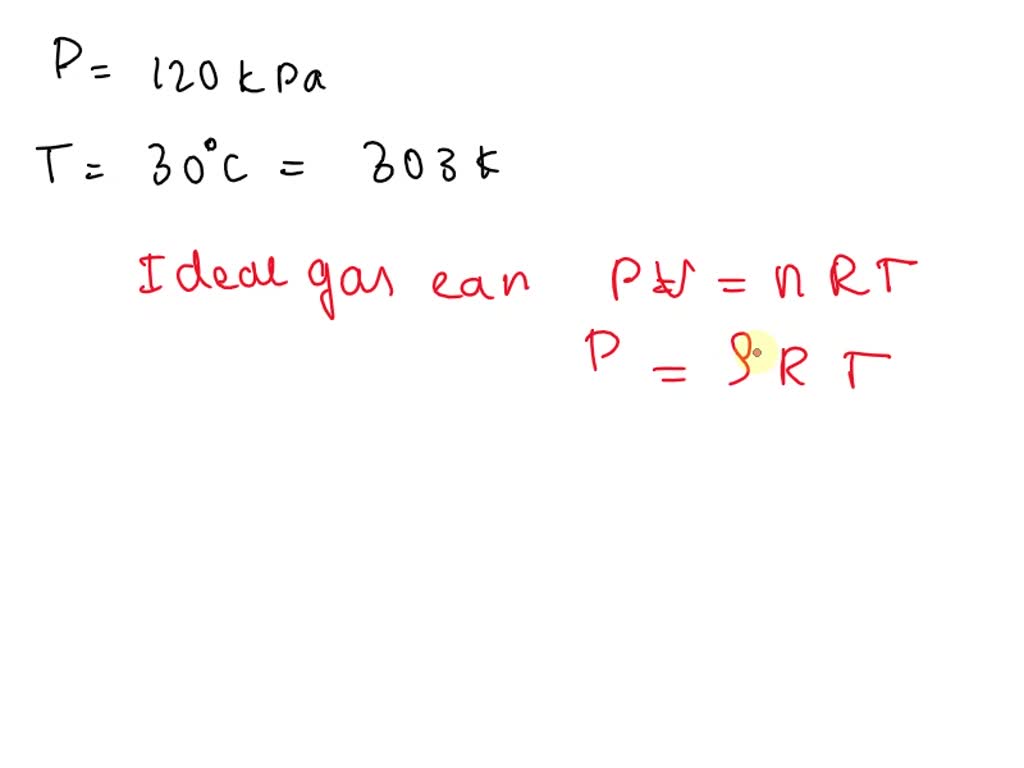 P = 120 kPa
T = 30°C = 303 K
Ideal gas ean PV = nRT
P = ρRT